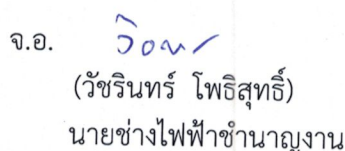 จ.อ.
(วัชรินทร์ โพธิสุทธิ์)
นายช่างไฟฟ้าชำนาญงาน